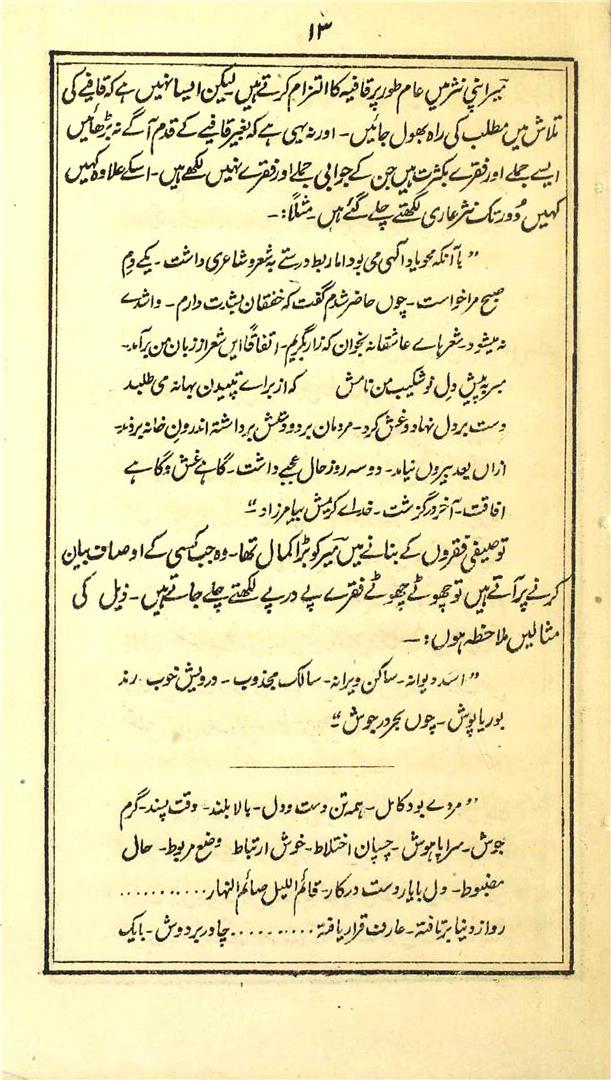 ۱۳
میر اپنی نثر میں عام طور پر قافیہ کا التزام کرتے ہیں لیکن ایسا نہیں ہے کہ قافیے کی
تلاش میں مطلب کی راہ بھول جائیں۔ اور نہ یہی ہے کہ بغیر قافیے کے قدم آگے نہ بڑھائیں
ایسے جملے اور فقرے بکثرت ہیں جن کے جوابی جملے اور فقرے نہیں لکھے ہیں۔ اسکے علاوہ کہیں
کہیں دُور تک نثر عاری لکھتے چلے گئے ہیں۔ مثلاً:۔
”باآنکہ محو یاد آلہی می بود اما ربط درستے بہ شعر و شاعری داشت۔ یکے دمِ
صبح مرا خواست۔ چوں حاضر شدم گفت کہ خفقان بشدت دارم۔ واشدے
نہ میشود شعر ہاے عاشقانہ بخواں کہ زار بگریم۔ اتفاقاً ایں شعر از زبان من برآمد۔
میر بہ پیشِ دلِ خوشکیب من نامش کہ از براے تپیدن بہانہ می طلبد
دست بر دل نہاد و غش کرد۔ مردمان بردوشش برداشتہ اندرونِ خانہ بردند۔
ازاں بعد بیروں نیامد۔ دو سہ روز حال عجبے داشت۔ گاہے غش و گاہے
افاقت۔ آخر درگزشت۔ خداے کریمش بیامرزاد“
توصیفی فقروں کے بنانے میں میر کو بڑا کمال تھا۔ وہ جب کسی کے اوصاف بیان
کرنے پر آتے ہیں تو چھوٹے چھوٹے فقرے پے در پے لکھتے چلے جاتے ہیں۔ ذیل کی
مثالیں ملاحظہ ہوں:۔
”اسد دیوانہ۔ ساکن ویرانہ۔ سالک مجذوب۔ درویش خوب رند
بوریا پوش۔ چوں بحر در جوش“
”مردے بود کامل۔ ہمہ تن دست و دل۔ بالا بلند۔ وقت پسند۔ گرم
جوش۔ سراپا ہوش۔ چسپان اختلاط۔ خوش ارتباط وضع مربوط۔ حال
مضبوط۔ دل بایار دست درکار۔ قائم اللیل صائم النہار...........
رو از دنیا برتافتہ۔ عارف قرار یافتہ.......... چادر بردوش۔ بایک